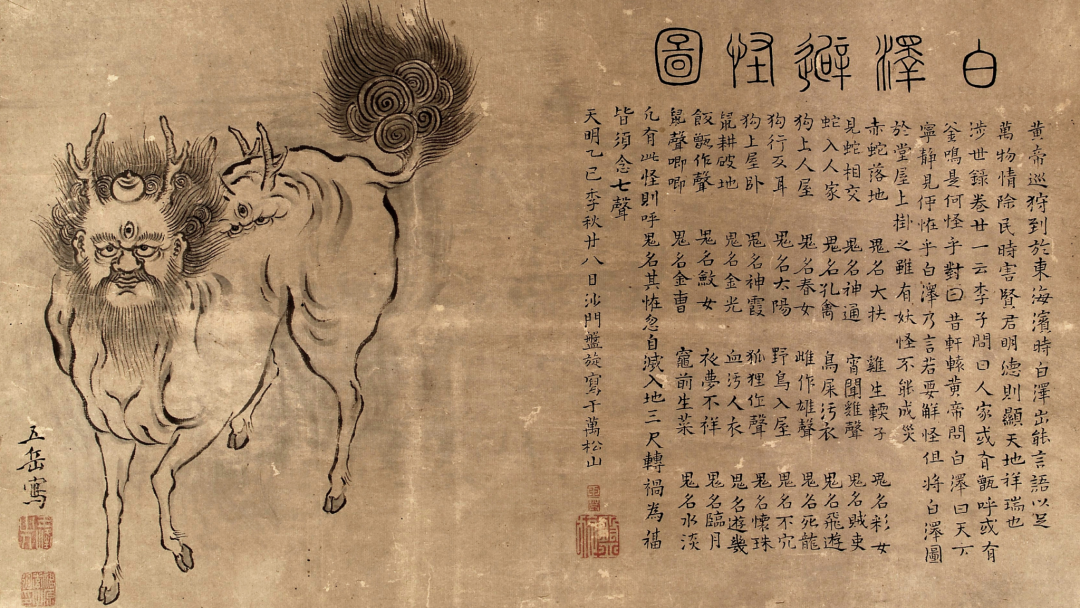 白澤避怪圖
黄帝巡狩到於東海濱時白澤出能言語以
萬物情除民時害賢君明德則顯天地祥瑞也
涉世録卷廿一云李子問曰人家或有甑呼或有
釜鳴是何怪乎對曰昔軒轅黄帝問白澤曰天下
寧静見何恠乎白澤乃言若要解怪但將白澤圖
於堂屋上掛之雖有妖怪不能成災
赤蛇落地 鬼名大扶 雞生輭子 鬼名彩女
見蛇相交 鬼名神通 宵聞雞聲 鬼名賊吏
蛇入人家 鬼名孔禽 鳥屎汚衣 鬼名飛遊
狗上人屋 鬼名春女 雌作雄聲 鬼名死龍
狗行反耳 鬼名太陽 野鳥入屋 鬼名不宂
狗上屋卧 鬼名神霞 狐狸作聲 鬼名懷珠
鼠耕破地 鬼名金光 血汚人衣 鬼名遊幾
飯甑作聲 鬼名斂女 衣夢不祥 鬼名臨月
鼠聲喞喞 鬼名金曹 竈前生菜 鬼名水淡
凡有此怪則呼鬼名其恠忽自滅入地三尺轉禍為福
皆須念七聲
天明乙巳季秋廿八日沙門盤旋寫于萬松山
五岳寫